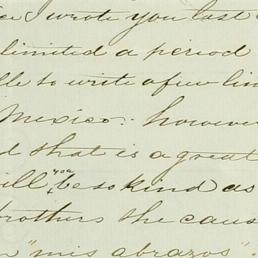 I wrote you last
limited a period
to write a few lin
Mexico: however
d that is a great
will you be so kind as
brothers the caus
"mis abrazos".